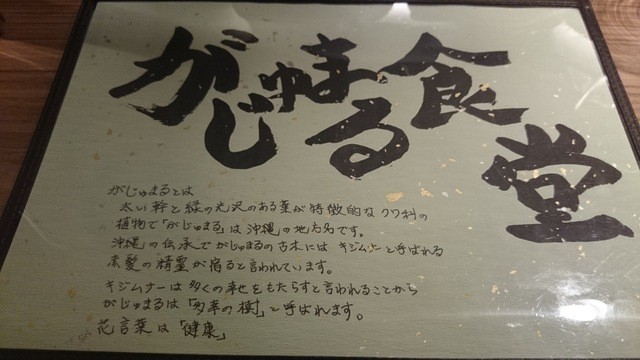 がじゅまる食堂
がじゅまるとは
太い幹と緑の光沢のある葉が特徴的なクワ科の
植物で「がじゅまる」は沖縄の地方名です。
沖縄の伝承でがじゅまるの古木にはキジムナーと呼ばれる
赤髪の精霊が宿ると言われています。
キジムナーは多くの幸せをもたらすと言われることから
がじゅまるは「多幸の樹」と呼ばれます。
花言葉は「健康」